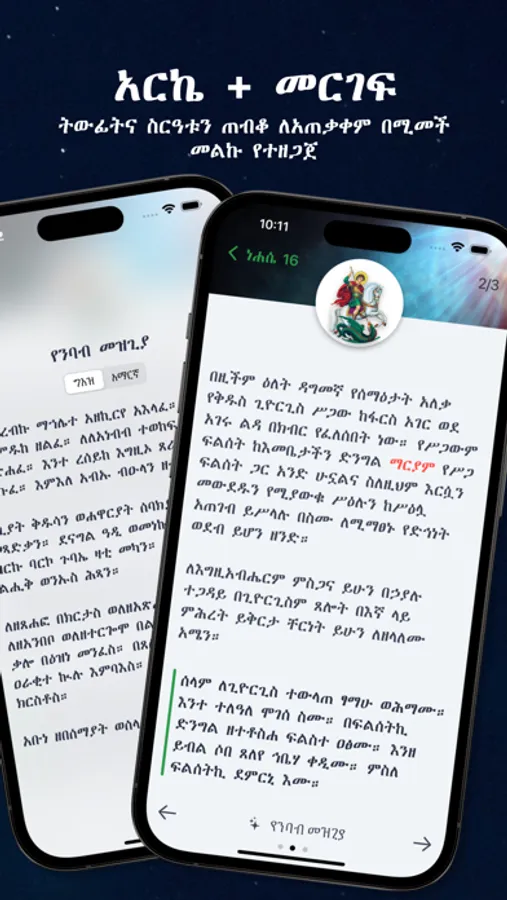 አርኬ + መርገፍ
ትውፊትና ስርዓቱን ጠብቆ ለአጠቃቀም በሚመች
መልኩ የተዘጋጀ
የንባብ መዝጊያ
ግእዝ አማርኛ
ማኅሌተ አዘኪርየ እእላፈ።
ዘልፈ። ለለአነብብ ተወክፍ
እንተ ረሰይከ እግዚኦ
እምእለ አብኡ ብዑላን
ቅዱሳን ወሐዋርያት
ደናግል ዓዲ
ባርኮ ጉባኤ ዛቲ መካን።
ወንኡስ ሕጻን።
ለዘጸሐፎ በክርታስ
ለዘአንበቦ ወለዘተርጐሞ
ቃሎ በዕዝነ መንፈስ።
ዐራቂተ ኵሉ እምባእስ።
ክርስቶስ።
አቡነ ዘበሰማያት
10:11
ነሐሴ 16
2/3
በዚችም ዕለት ዳግመኛ የሰማዕታት አለቃ
የቅዱስ ጊዮርጊስ ሥጋው ከፋርስ አገር ወደ
አገሩ ልዳ በክብር የፈለሰበት ነው። የሥጋውም
ፍልሰት ከእመቤታችን ድንግል ማርያም የሥጋ
ፍልሰት ጋር አንድ ሁኗልና ስለዚህም እርሷን
መውደዱን የሚያውቁ ሥዕሉን ከሥዕሏ
አጠገብ ይሥላሉ በስሙ ለሚማፀኑ የድኅነት
ወደብ ይሆን ዘንድ።
ለእግዚአብሔርም ምስጋና ይሁን በኃያሉ
ተጋዳይ በጊዮርጊስም ጸሎት በእኛ ላይ
ምሕረት ይቅርታ ቸርነት ይሁን ለዘላለሙ
አሜን።
ሰላም ለጊዮርጊስ ተውላጠ ፃማሁ ወሕማሙ።
እንተ ተለዓለ ሞገሰ ስሙ። በፍልሰትኪ
ድንግል ዘተቶስሐ ፍልስተ ዐፅሙ። እንዘ
ይብል ሶበ ጸለየ ኀቤሃ ቀዲሙ። ምስለ
ፍልሰትኪ ደምርኒ እሙ።
የንባብ መዝጊያ